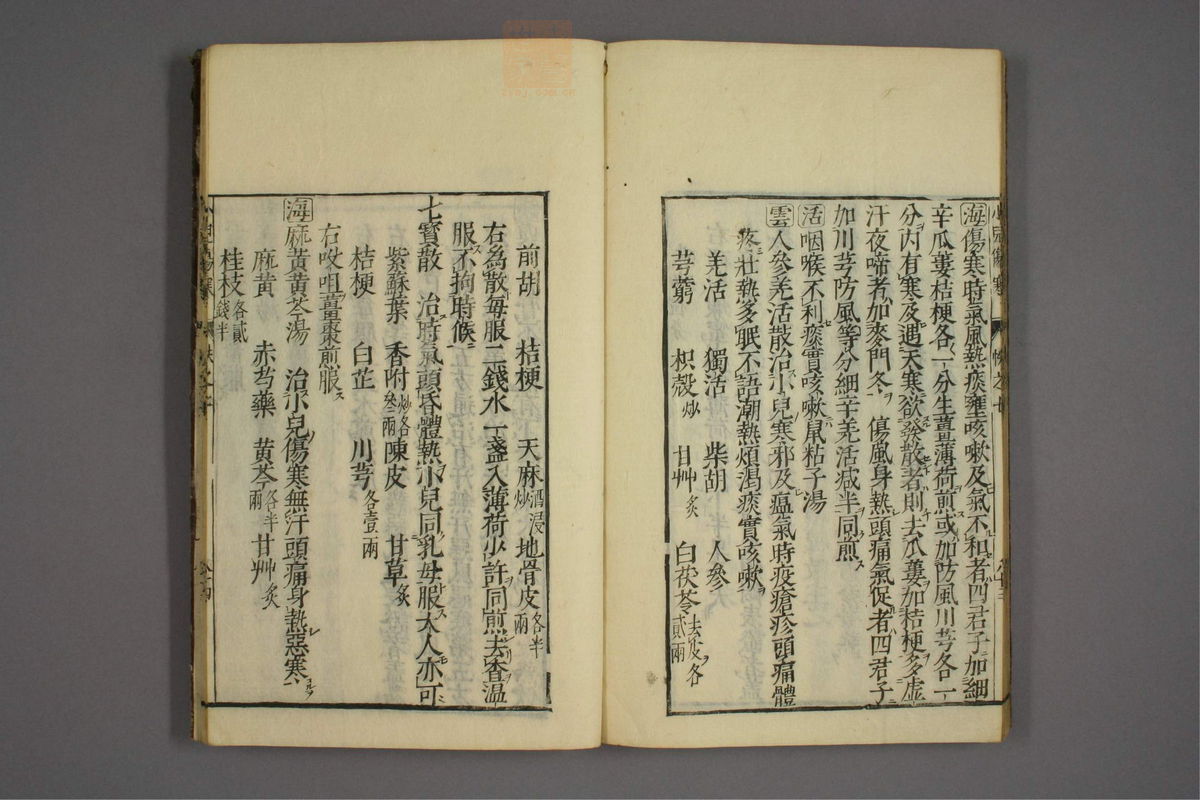 海傷寒時氣風熱痰壅咳嗽及氣不和者四君子加細
辛瓜蔞桔梗各一分生薑薄荷煎或加防風川芎各一
分內有寒及遇天寒欲發散者則去瓜蔞加桔梗多虛
汗夜啼者加麥門冬傷風身熱頭痛氣促者四君子
加川芎防風等分細辛羌活減半同煎
活咽喉不利痰實咳嗽鼠粘子湯
雲人參羌活散治小兒寒邪及瘟氣時疫瘡疹頭痛體
疼壯熱多眠不語潮熱煩渴痰實咳嗽
羌活 獨活 柴胡 人參
芎藭 枳殼炒 甘艸炙 白茯苓去皮各貳兩
前胡 桔梗 天麻酒浸炒 地骨皮各半兩
右為散每服一錢水一盞入薄荷少許同煎去查溫
服不拘時候
七寳散 治時氣頭昏體熱小兒同乳母服大人亦可
紫蘇葉 香附炒各叁兩 陳皮 甘草炙
桔梗 白芷 川芎各壹兩
右㕮咀薑棗煎服
海麻黃黃芩湯 治小兒傷寒無汗頭痛身熱惡寒
麻黃 赤芍藥 黃芩各半兩 甘艸炙
桂枝各貳錢半